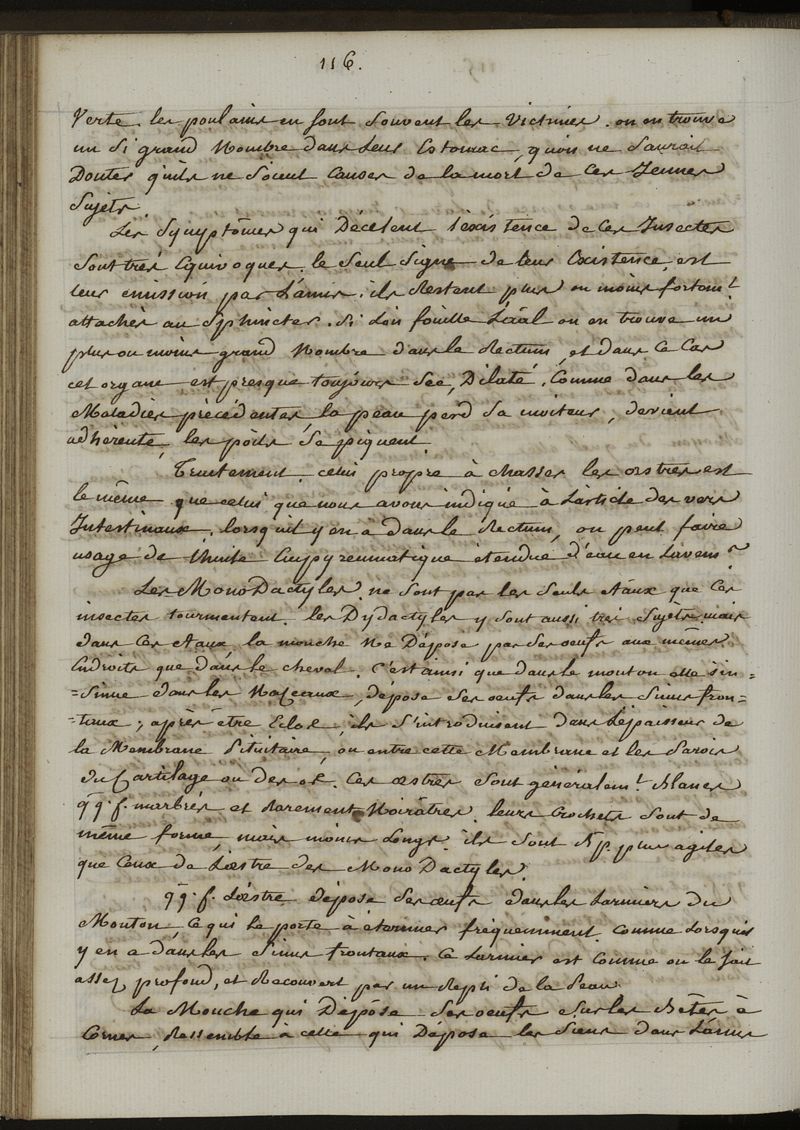 116.
Verte. les poulains en sont souvent les Victimes. on en trouve
un si grand Nombre dans leur Estomac, qu'on ne sauroit
Douter qu'ils ne soient Causes de la mort de Ces Jeunes
Sujets.
Les Symptômes qui Décelent l'existence de Ces Insectes
sont très Equivoques. le seul signe de leur Existence, est
leur emission par L'anus. ils Restent plus ou moins fortem.t
attachés au Sphincter. si L'on fouille L'aãl on en trouve un
plus ou moins grand Nombre dans le Rectum, et dans Ce Cas
cet organe est presque toujours sec, Dilaté. Comme dans les
Maladies précédentes, la peau perd sa moiteur, devient
adhérente, les poils se piquent.
Traitement. celui propre à chasser les oestres est
le même que celui que nous avons indiqué à L'article des vers
Intestinaux. lorsqu'il y en à dans le Rectum, on peut faire
usage de l'huile Empyreumatique etendue d'eau en Lavem.t
Les MonoDactyles ne sont pas les seuls Aãux que Ces
insectes tourmentent. les Dydactyles y sont aussi très sujets. mais
dans Ces Aãux la mouche Ne Dépose pas ses oeufs aux mêmes
Endroits que dans le cheval. C'est ainsi que dans le mouton elle s'in=
=sinue dans les Nazeaux, dépose ses oeufs dans les sinus fron=
=taux, après être Eclos, ils s'introduisent dans L'épaisseur de
la Membrane Pituitaire, ou entre cette Membrane et les Parois
du Cartilage ou des os. Ces oestres sont généralem.t Blancs
qq. f. marbrés et Rarement Noirâtres. leurs Crochets sont de
même forme, mais moins Longs. ils sont Bp. plus agiles
que Ceux de L'oestre des MonoDactyles.
qq. f. L'oestre dépose ses oeufs dans les Larmiers du
Mouton, Ce qui le porte à éternuer fréquemment. Comme Lorsqu'il
y en a dans les Sinus frontaux. Ce Larmier est Comme on le sait
assez profond, et Recouvert par un Repli de la Peau.
La Mouche qui Dépose ses oeufs sur les Bêtes à
Cornes, Ressemble à celle qui Dépose les siens dans L'anus